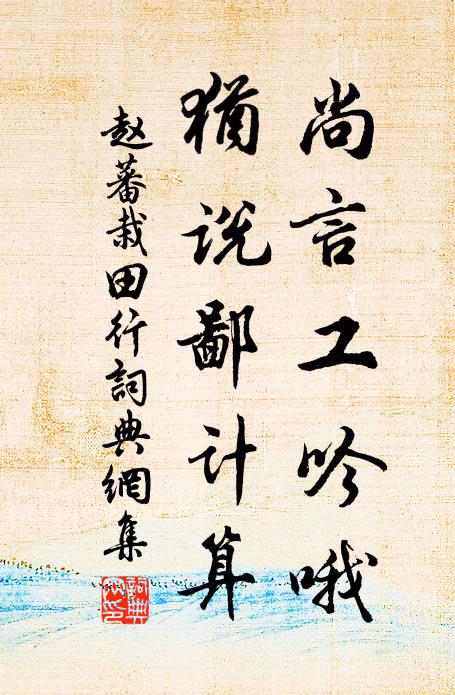 尚言工吟哦
犹说鄙计算
赵蕃栽田行詞典網集